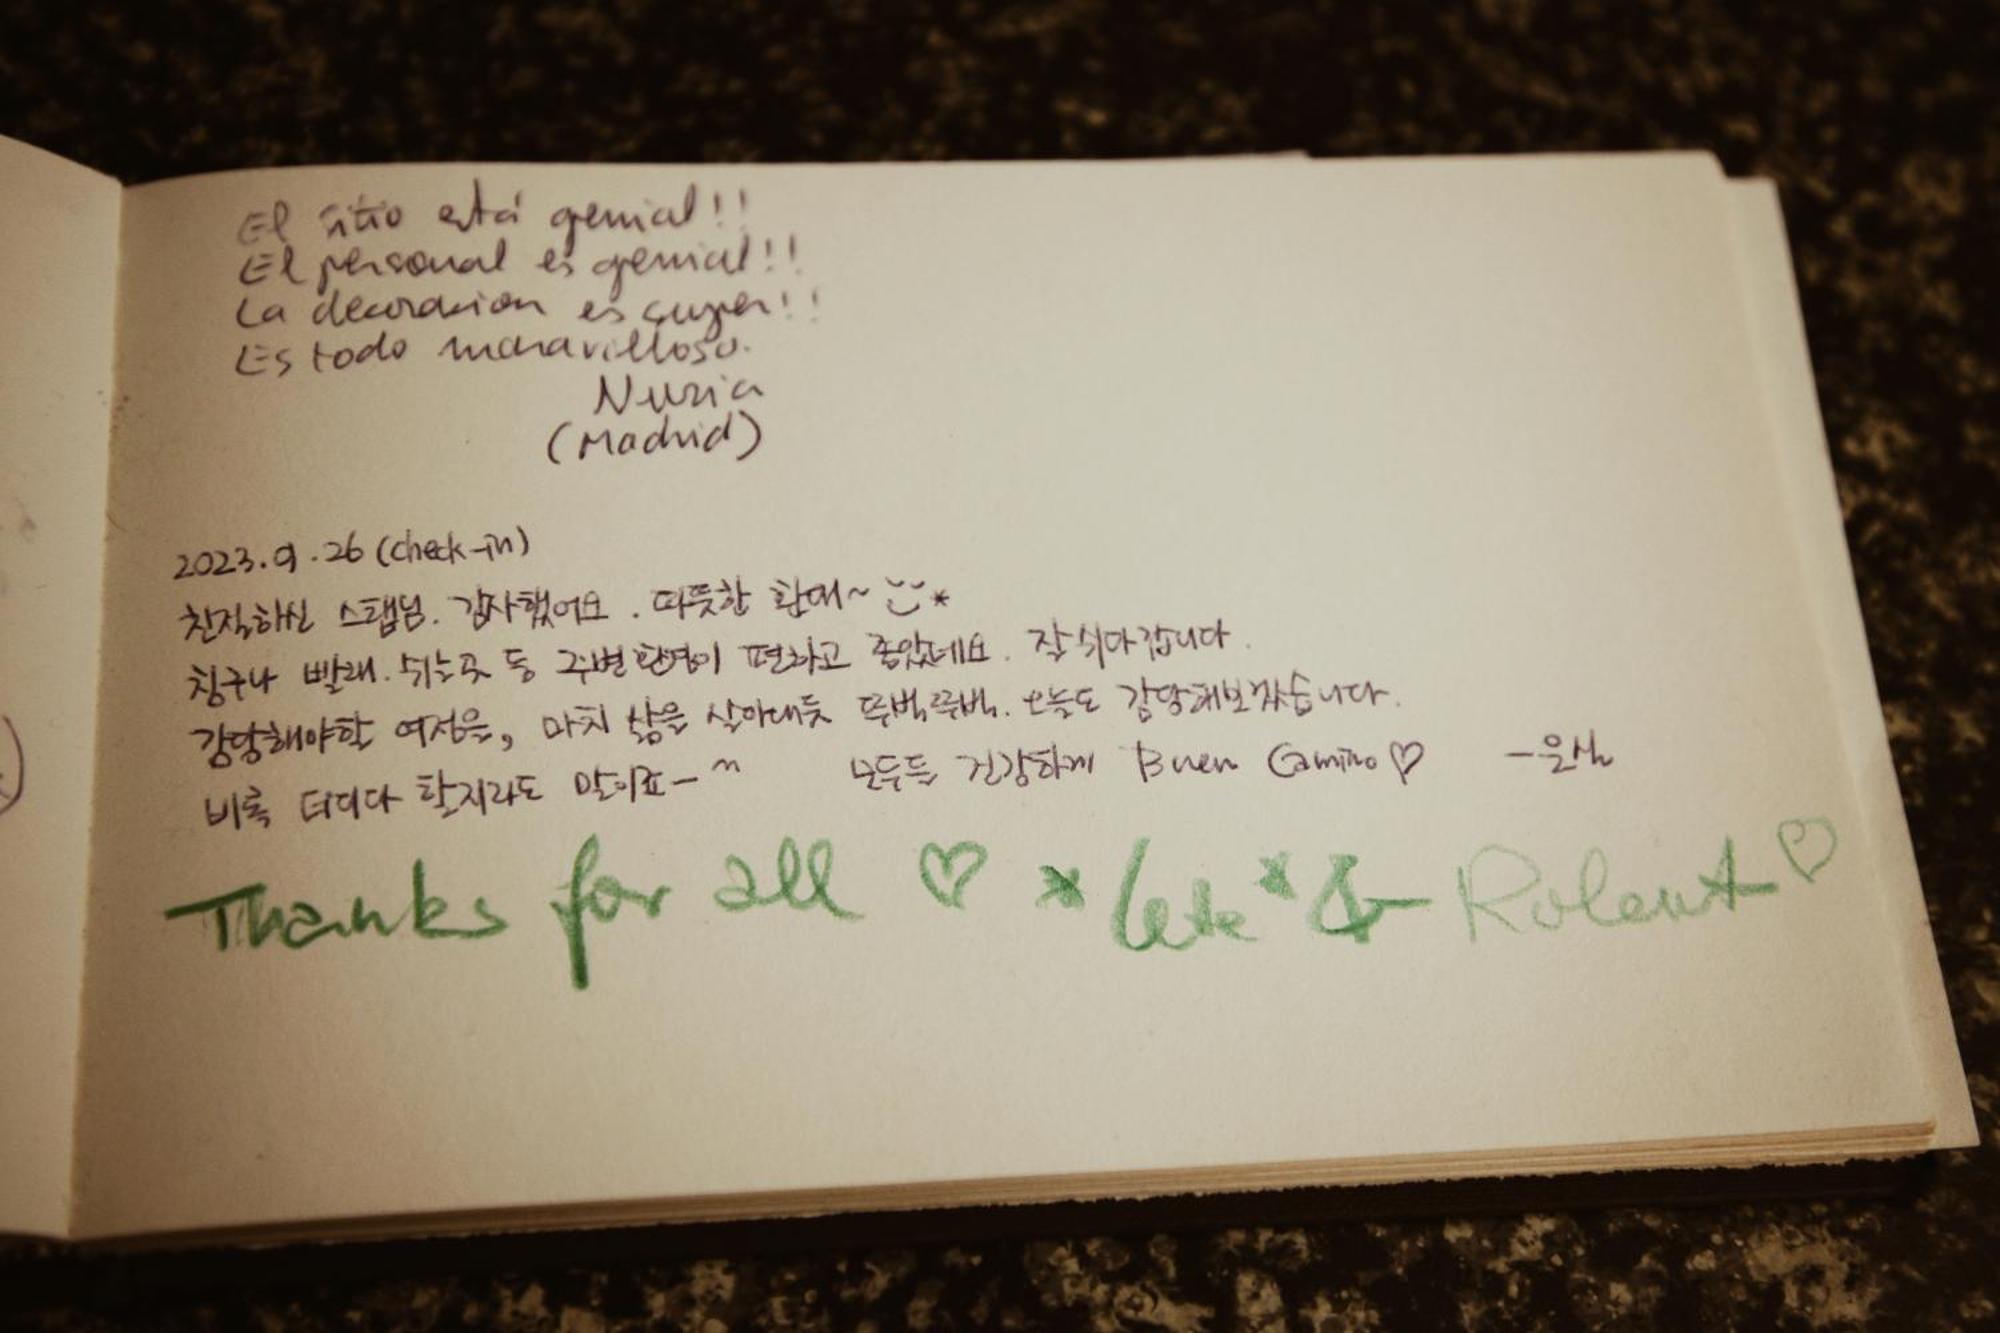 El sitio está genial!!
El personal es genial!!
La decoración es super!!
Es todo maravilloso.
Nuria
(Madrid)
2023.9.26 (check-in)
친절하신 스탭님. 감사했어요. 따뜻한 환대~
침구나 빨래. 쉬는곳 등 주변환경이 편하고 좋았네요. 잘 쉬다 갑니다.
감당해야할 여정을, 마치 삶을 살아내듯 뚜벅뚜벅. 오늘도 감당해보겠습니다.
비록 더디다 할지라도 말이죠-^^ 모두들 건강하게 Buen Camino♡ -은
Thanks for all ♡ * * & ♡